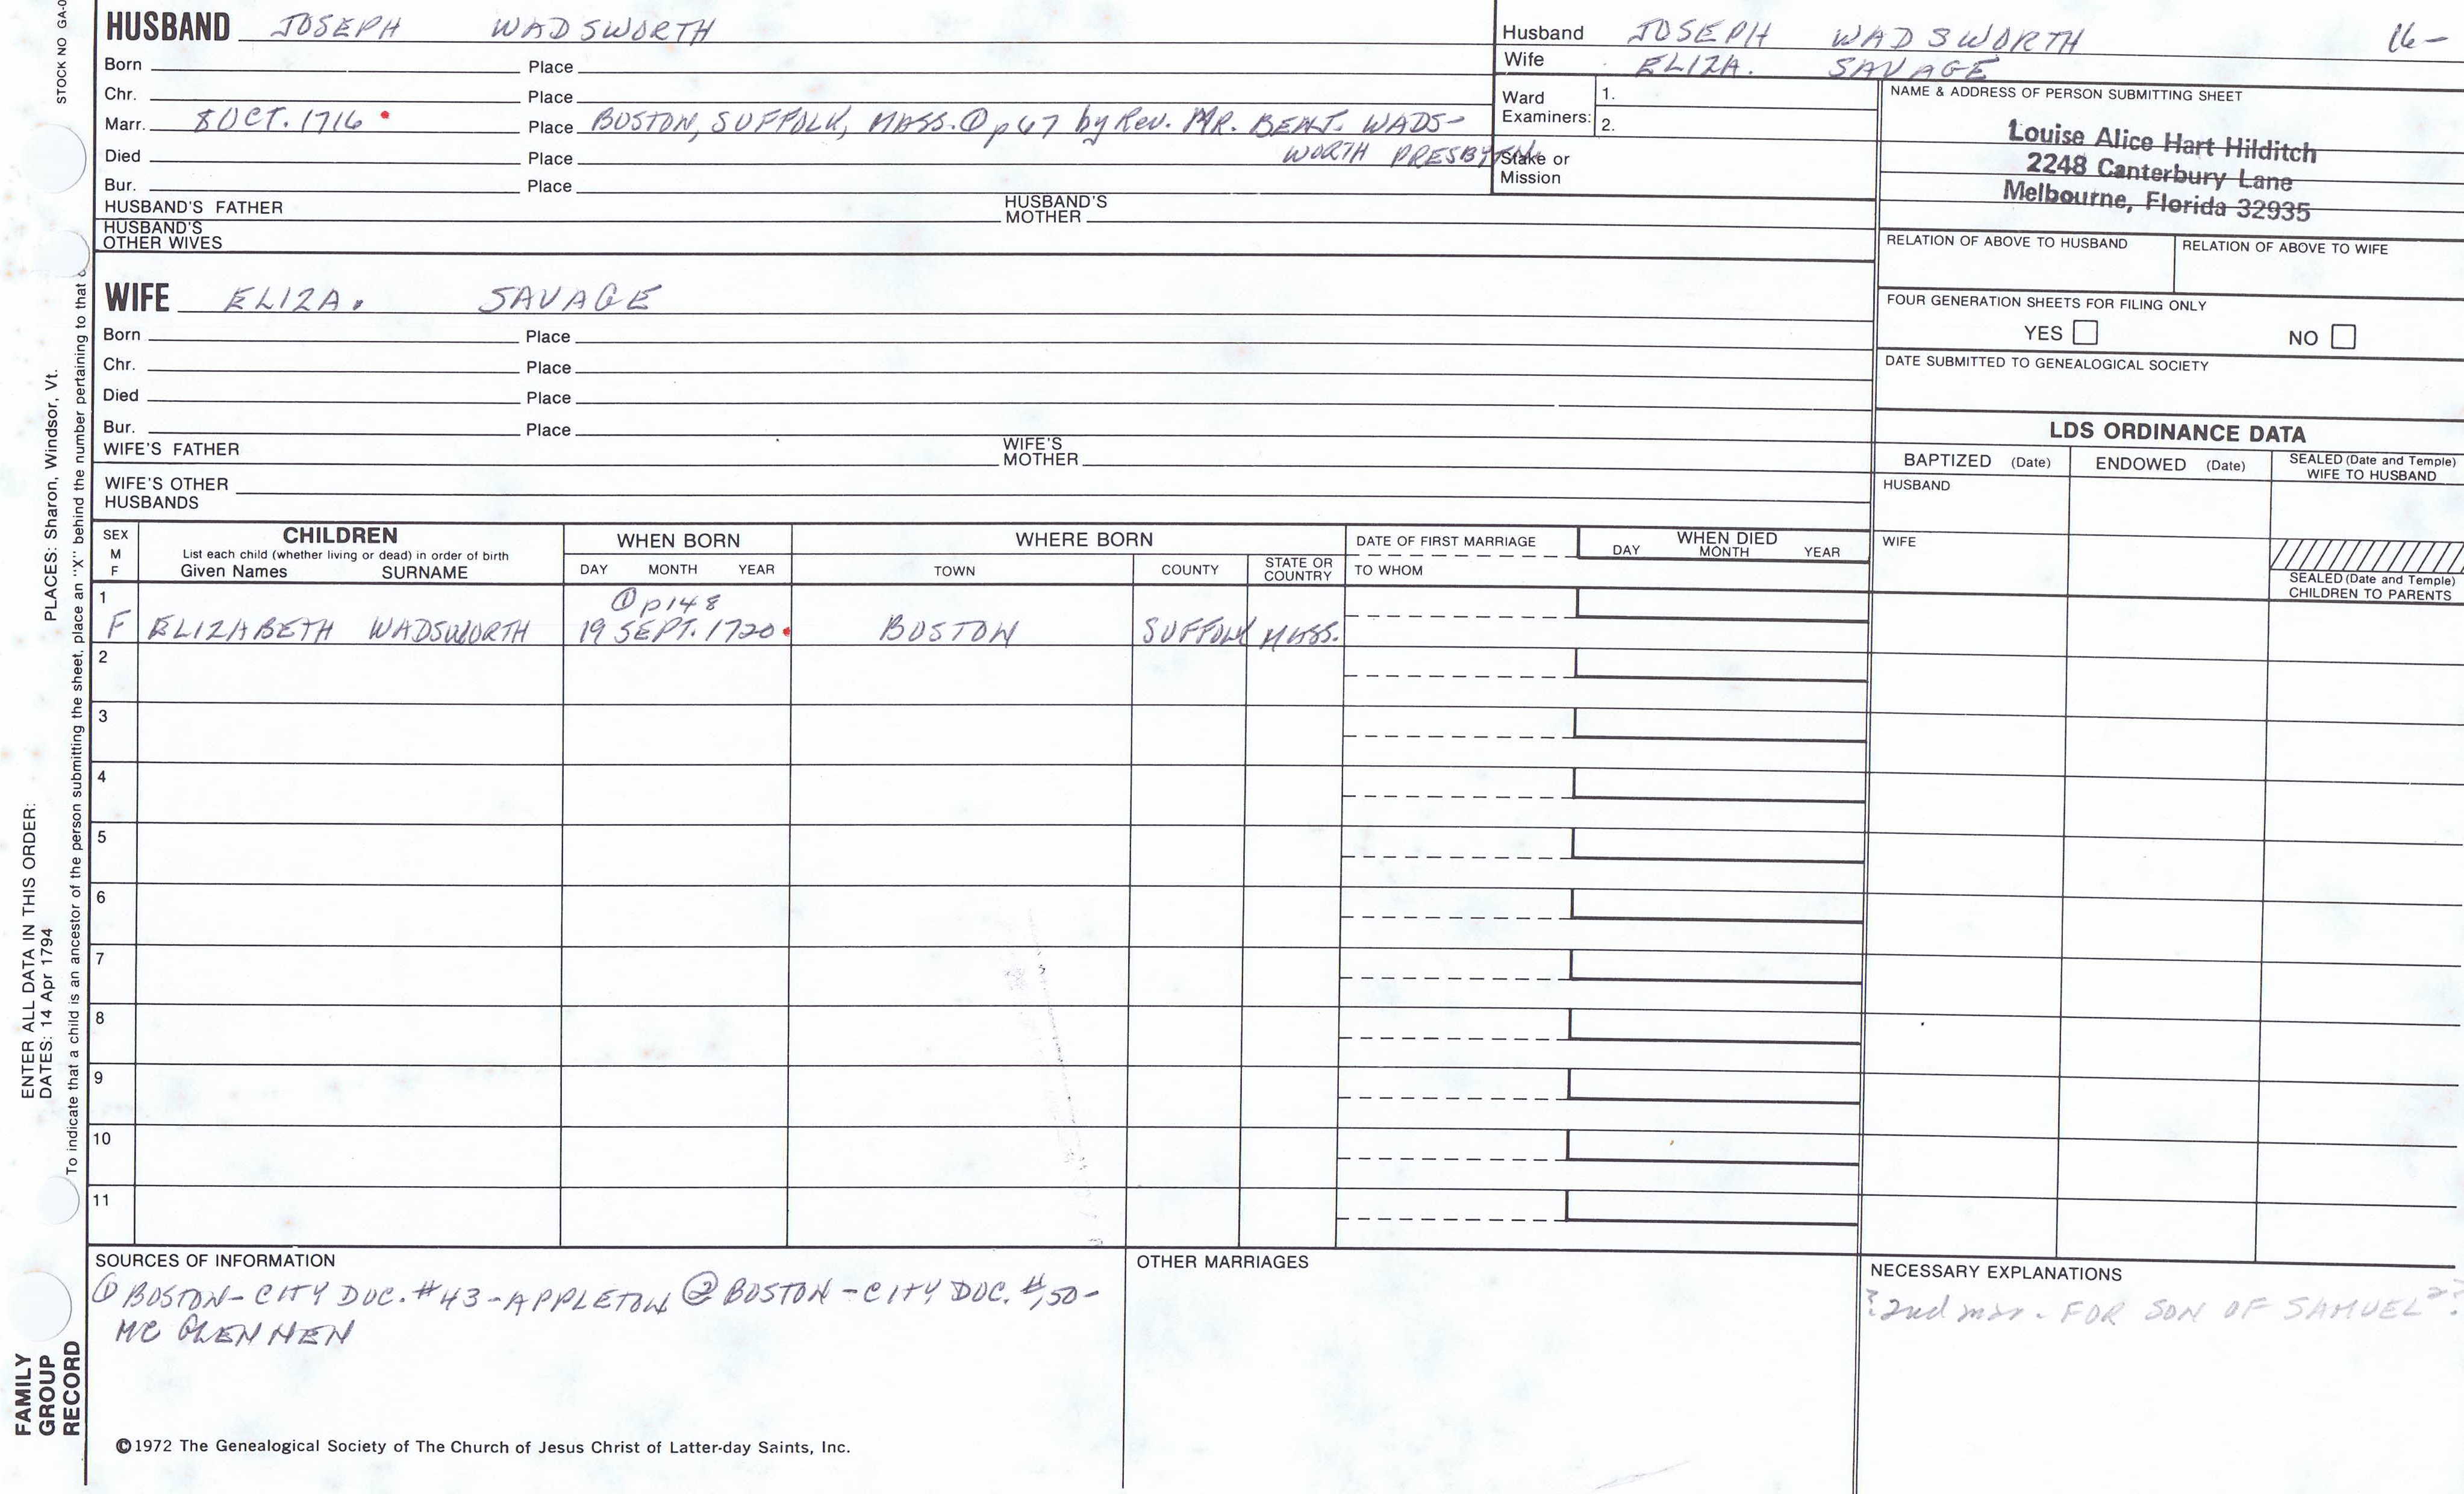 STOCK NO GA-0
HUSBAND JOSEPH WADSWORTH
Born Place
Chr. Place
Marr. 8 OCT. 1716 Place BOSTON, SUFFOLK, MASS. ① p 67 by Rev. MR. BENJ. WADS-
WORTH PRESBYTN.
Died Place
Bur. Place
HUSBAND'S FATHER HUSBAND'S MOTHER
HUSBAND'S OTHER WIVES
Husband JOSEPH WADSWORTH 16-
Wife ELIZA. SAVAGE
Ward Examiners: 1.
2.
Stake or Mission
NAME & ADDRESS OF PERSON SUBMITTING SHEET
Louise Alice Hart Hilditch
2248 Canterbury Lane
Melbourne, Florida 32935
RELATION OF ABOVE TO HUSBAND RELATION OF ABOVE TO WIFE
FOUR GENERATION SHEETS FOR FILING ONLY
YES NO
DATE SUBMITTED TO GENEALOGICAL SOCIETY
WIFE ELIZA. SAVAGE
Born Place
Chr. Place
Died Place
Bur. Place
WIFE'S FATHER WIFE'S MOTHER
WIFE'S OTHER HUSBANDS
LDS ORDINANCE DATA
BAPTIZED (Date) ENDOWED (Date) SEALED (Date and Temple) WIFE TO HUSBAND
HUSBAND
WIFE
SEALED (Date and Temple) CHILDREN TO PARENTS
SEX M F
CHILDREN
List each child (whether living or dead) in order of birth
Given Names SURNAME
WHEN BORN
DAY MONTH YEAR
WHERE BORN
TOWN COUNTY STATE OR COUNTRY
DATE OF FIRST MARRIAGE
TO WHOM
WHEN DIED
DAY MONTH YEAR
1
① p148
F ELIZABETH WADSWORTH 19 SEPT. 1720 BOSTON SUFFOLK MASS.
2
3
4
5
6
7
8
9
10
11
SOURCES OF INFORMATION
① BOSTON - CITY DOC. #43 - APPLETON ② BOSTON - CITY DOC. #150 -
MC GLENNEN
OTHER MARRIAGES
NECESSARY EXPLANATIONS
? 2nd mar. FOR SON OF SAMUEL ??
©1972 The Genealogical Society of The Church of Jesus Christ of Latter-day Saints, Inc.
ENTER ALL DATA IN THIS ORDER:
DATES: 14 Apr 1794
PLACES: Sharon, Windsor, Vt.
To indicate that a child is an ancestor of the person submitting the sheet, place an "X" behind the number pertaining to that
FAMILY
GROUP
RECORD